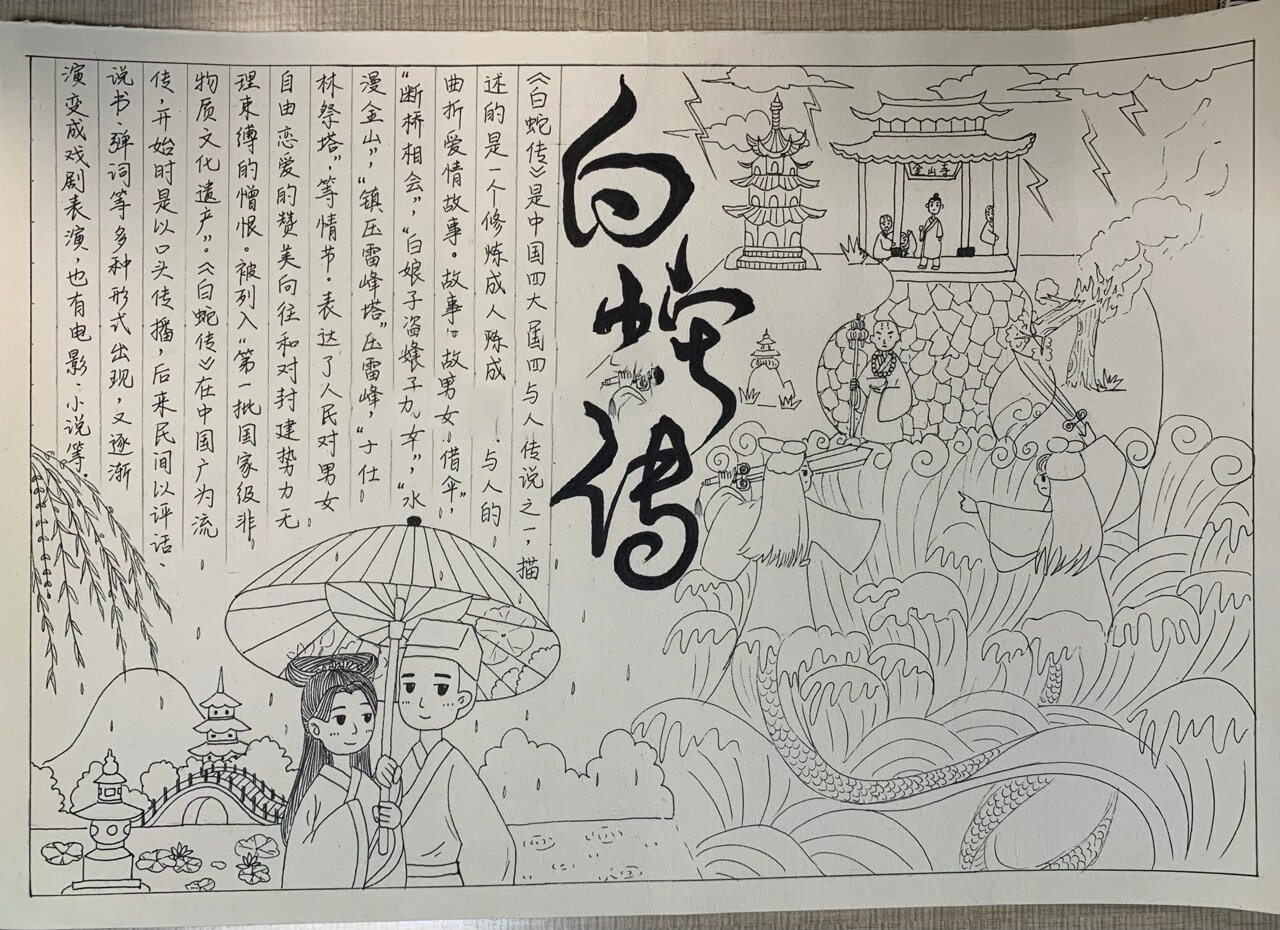 白蛇传
《白蛇传》是中国四大属四与人传说之一，描
述的是一个修炼成人炼成 与人的
曲折爱情故事。故事：故男女，借伞”，
“断桥相会”，“白娘子盗 子九 ”，“水
漫金山”，“镇压雷峰塔”压雷峰，“子仕
林祭塔”等情节。表达了人民对男女
自由恋爱的赞美向往和对封建势力无
理束缚的憎恨。被列入“第一批国家级非
物质文化遗产”。《白蛇传》在中国广为流
传，开始时是以口头传播，后来民间以评话、
说书、弹词等多种形式出现，又逐渐
演变成戏剧表演，也有电影、小说等。
金山寺